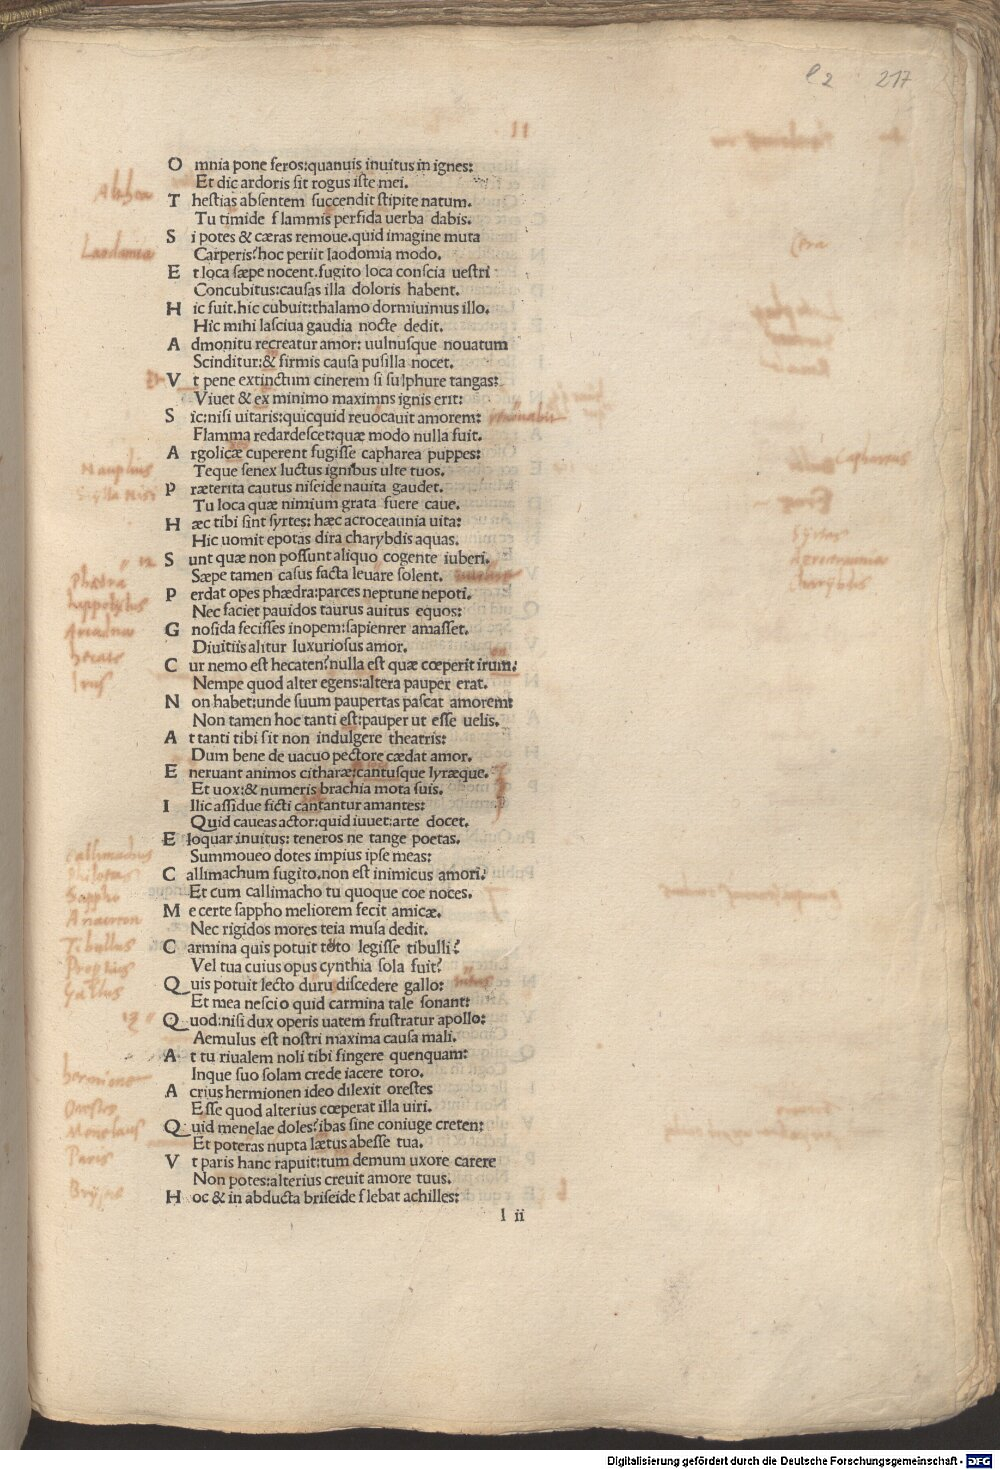 l2 217
O mnia pone feros:quanuis inuitus in ignes:
Et dic ardoris sit rogus iste mei.
Althea
T hestias absentem succendit stipite natum.
Tu timide flammis perfida uerba dabis.
S i potes & cæras remoue.quid imagine muta
Cera
Laodamia
Carperis?hoc periit laodomia modo.
E t loca sæpe nocent.fugito loca conscia uestri
Concubitus:causas illa doloris habent.
H ic fuit.hic cubuit:thalamo dormiuimus illo.
Hic mihi lasciua gaudia nocte dedit.
A dmonitu recreatur amor: uulnusque nouatum
Scinditur:& firmis causa pusilla nocet.
V t pene extinctum cinerem si sulphure tangas:
Viuet & ex minimo maximns ignis erit:
S ic:nisi uitaris:quicquid reuocauit amorem:
Flamma redardescet:quæ modo nulla fuit.
A rgolicæ cuperent fugisse capharea puppes:
Caphareus
Nauplius
Teque senex luctus ignibus ulte tuos.
Scylla Nisi
P ræterita cautus niseide nauita gaudet.
Tu loca quæ nimium grata fuere caue.
H æc tibi sint syrtes: hæc acroceaunia uita:
Syrtes
Hic uomit epotas dira charybdis aquas.
Acroceraunia
S unt quæ non possunt aliquo cogente iuberi.
Charybdis
Sæpe tamen casus facta leuare solent.
Phædra
P erdat opes phædra:parces neptune nepoti.
hippolytus
Nec faciet pauidos taurus auitus equos:
Ariadna
G nosida fecisses inopem:sapienrer amasset.
Diuitiis alitur luxuriosus amor.
hecale
C ur nemo est hecaten?nulla est quæ cœperit irum?
Irus
Nempe quod alter egens:altera pauper erat.
N on habet:unde suum paupertas pascat amorem:
Non tamen hoc tanti est:pauper ut esse uelis.
A t tanti tibi sit non indulgere theatris:
Dum bene de uacuo pectore cædat amor.
E neruant animos citharæ:cantusque lyræque.
Et uox:& numeris brachia mota suis.
I llic assidue ficti cantantur amantes:
Quid caueas actor:quid iuuet:arte docet.
E loquar inuitus: teneros ne tange poetas.
Callimachus
Summoueo dotes impius ipse meas:
philetas
C allimachum fugito.non est inimicus amori?
Sappho
Et cum callimacho tu quoque coe noces.
Anacreon
M e certe sappho meliorem fecit amicæ.
Nec rigidos mores teia musa dedit.
Tibullus
C armina quis potuit toto legisse tibulli?
Proptius
Vel tua cuius opus cynthia sola fuit?
Gallus
Q uis potuit lecto duru discedere gallo:
Et mea nescio quid carmina tale sonant:
Q uod:nisi dux operis uatem frustratur apollo:
Aemulus est nostri maxima causa mali.
A t tu riualem noli tibi fingere quenquam:
hermione
Inque suo solam crede iacere toro.
A crius hermionen ideo dilexit orestes
Orestes
Esse quod alterius cœperat illa uiri.
Menelaus
Q uid menelae doles?ibas sine coniuge creten:
Et poteras nupta lætus abesse tua.
Paris
V t paris hanc rapuit:tum demum uxore carere
Non potes:alterius creuit amore tuus.
H oc & in abducta briseide flebat achilles:
l ii
Digitalisierung gefördert durch die Deutsche Forschungsgemeinschaft - DFG